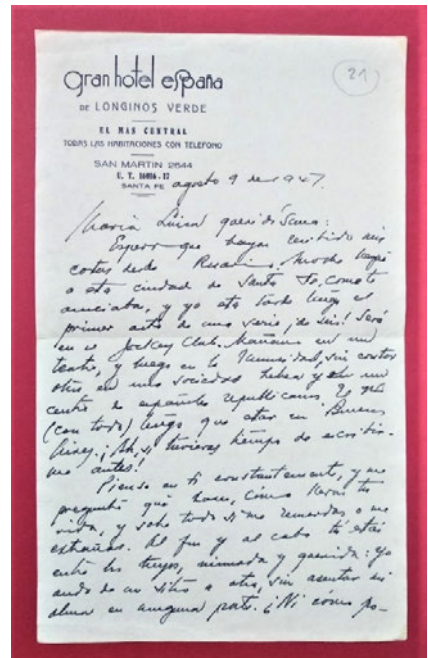 gran hotel españa
DE LONGINOS VERDE
EL MAS CENTRAL
TODAS LAS HABITACIONES CON TELEFONO
SAN MARTIN 2644
U. T. 16016-17
SANTA FE agosto 9 de 1947.
21
María Luisa queridísima:
Espero que hayas recibido mis
cartas desde Rosario. Anoche llegué
a esta ciudad de Santa Fe, como te
anunciaba, y yo esta tarde tengo el
primer acto de una serie, ¡de seis! Será
en el Jockey Club. Mañana en un
teatro, y luego en la Universidad, sin contar
otro en una sociedad hebrea y en un
centro de españoles republicanos.
(con todo) tengo que estar en Buenos
Aires. ¡Ah, si tuvieras tiempo de escribir-
me antes!
Pienso en ti constantemente, y me
pregunto qué haces, cómo llevas tu
vida, y sobre todo si me recuerdas o me
extrañas. Al fin y al cabo tú estás
entre los tuyos, mimada y querida: yo
ando de un sitio a otro, sin asentar mi
alma en ninguna parte. ¡Ni cómo po-